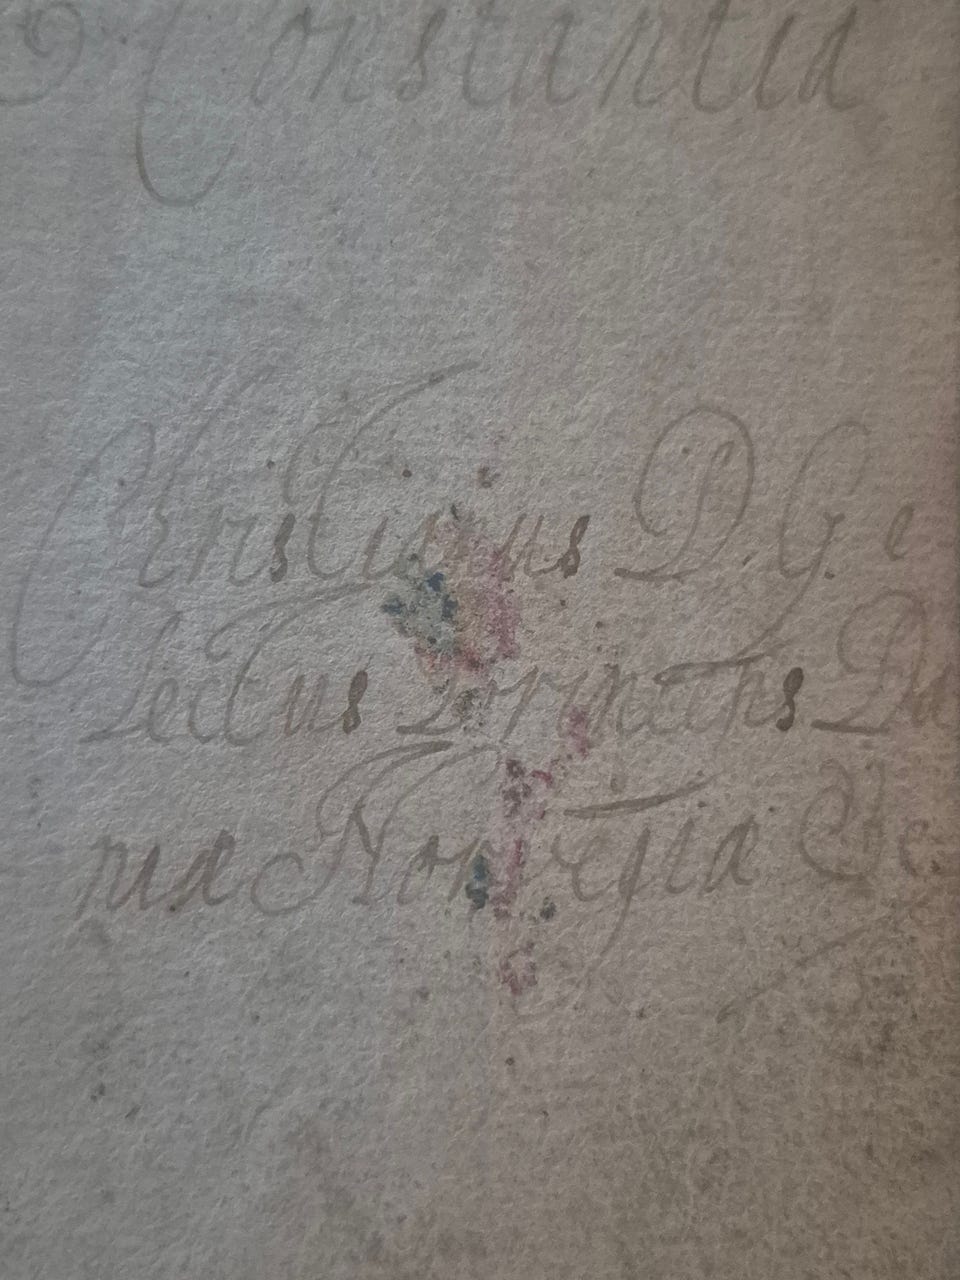 Constantia
Christianus D. G. e
lectus Princeps Da
niæ Norvegiæ &c.